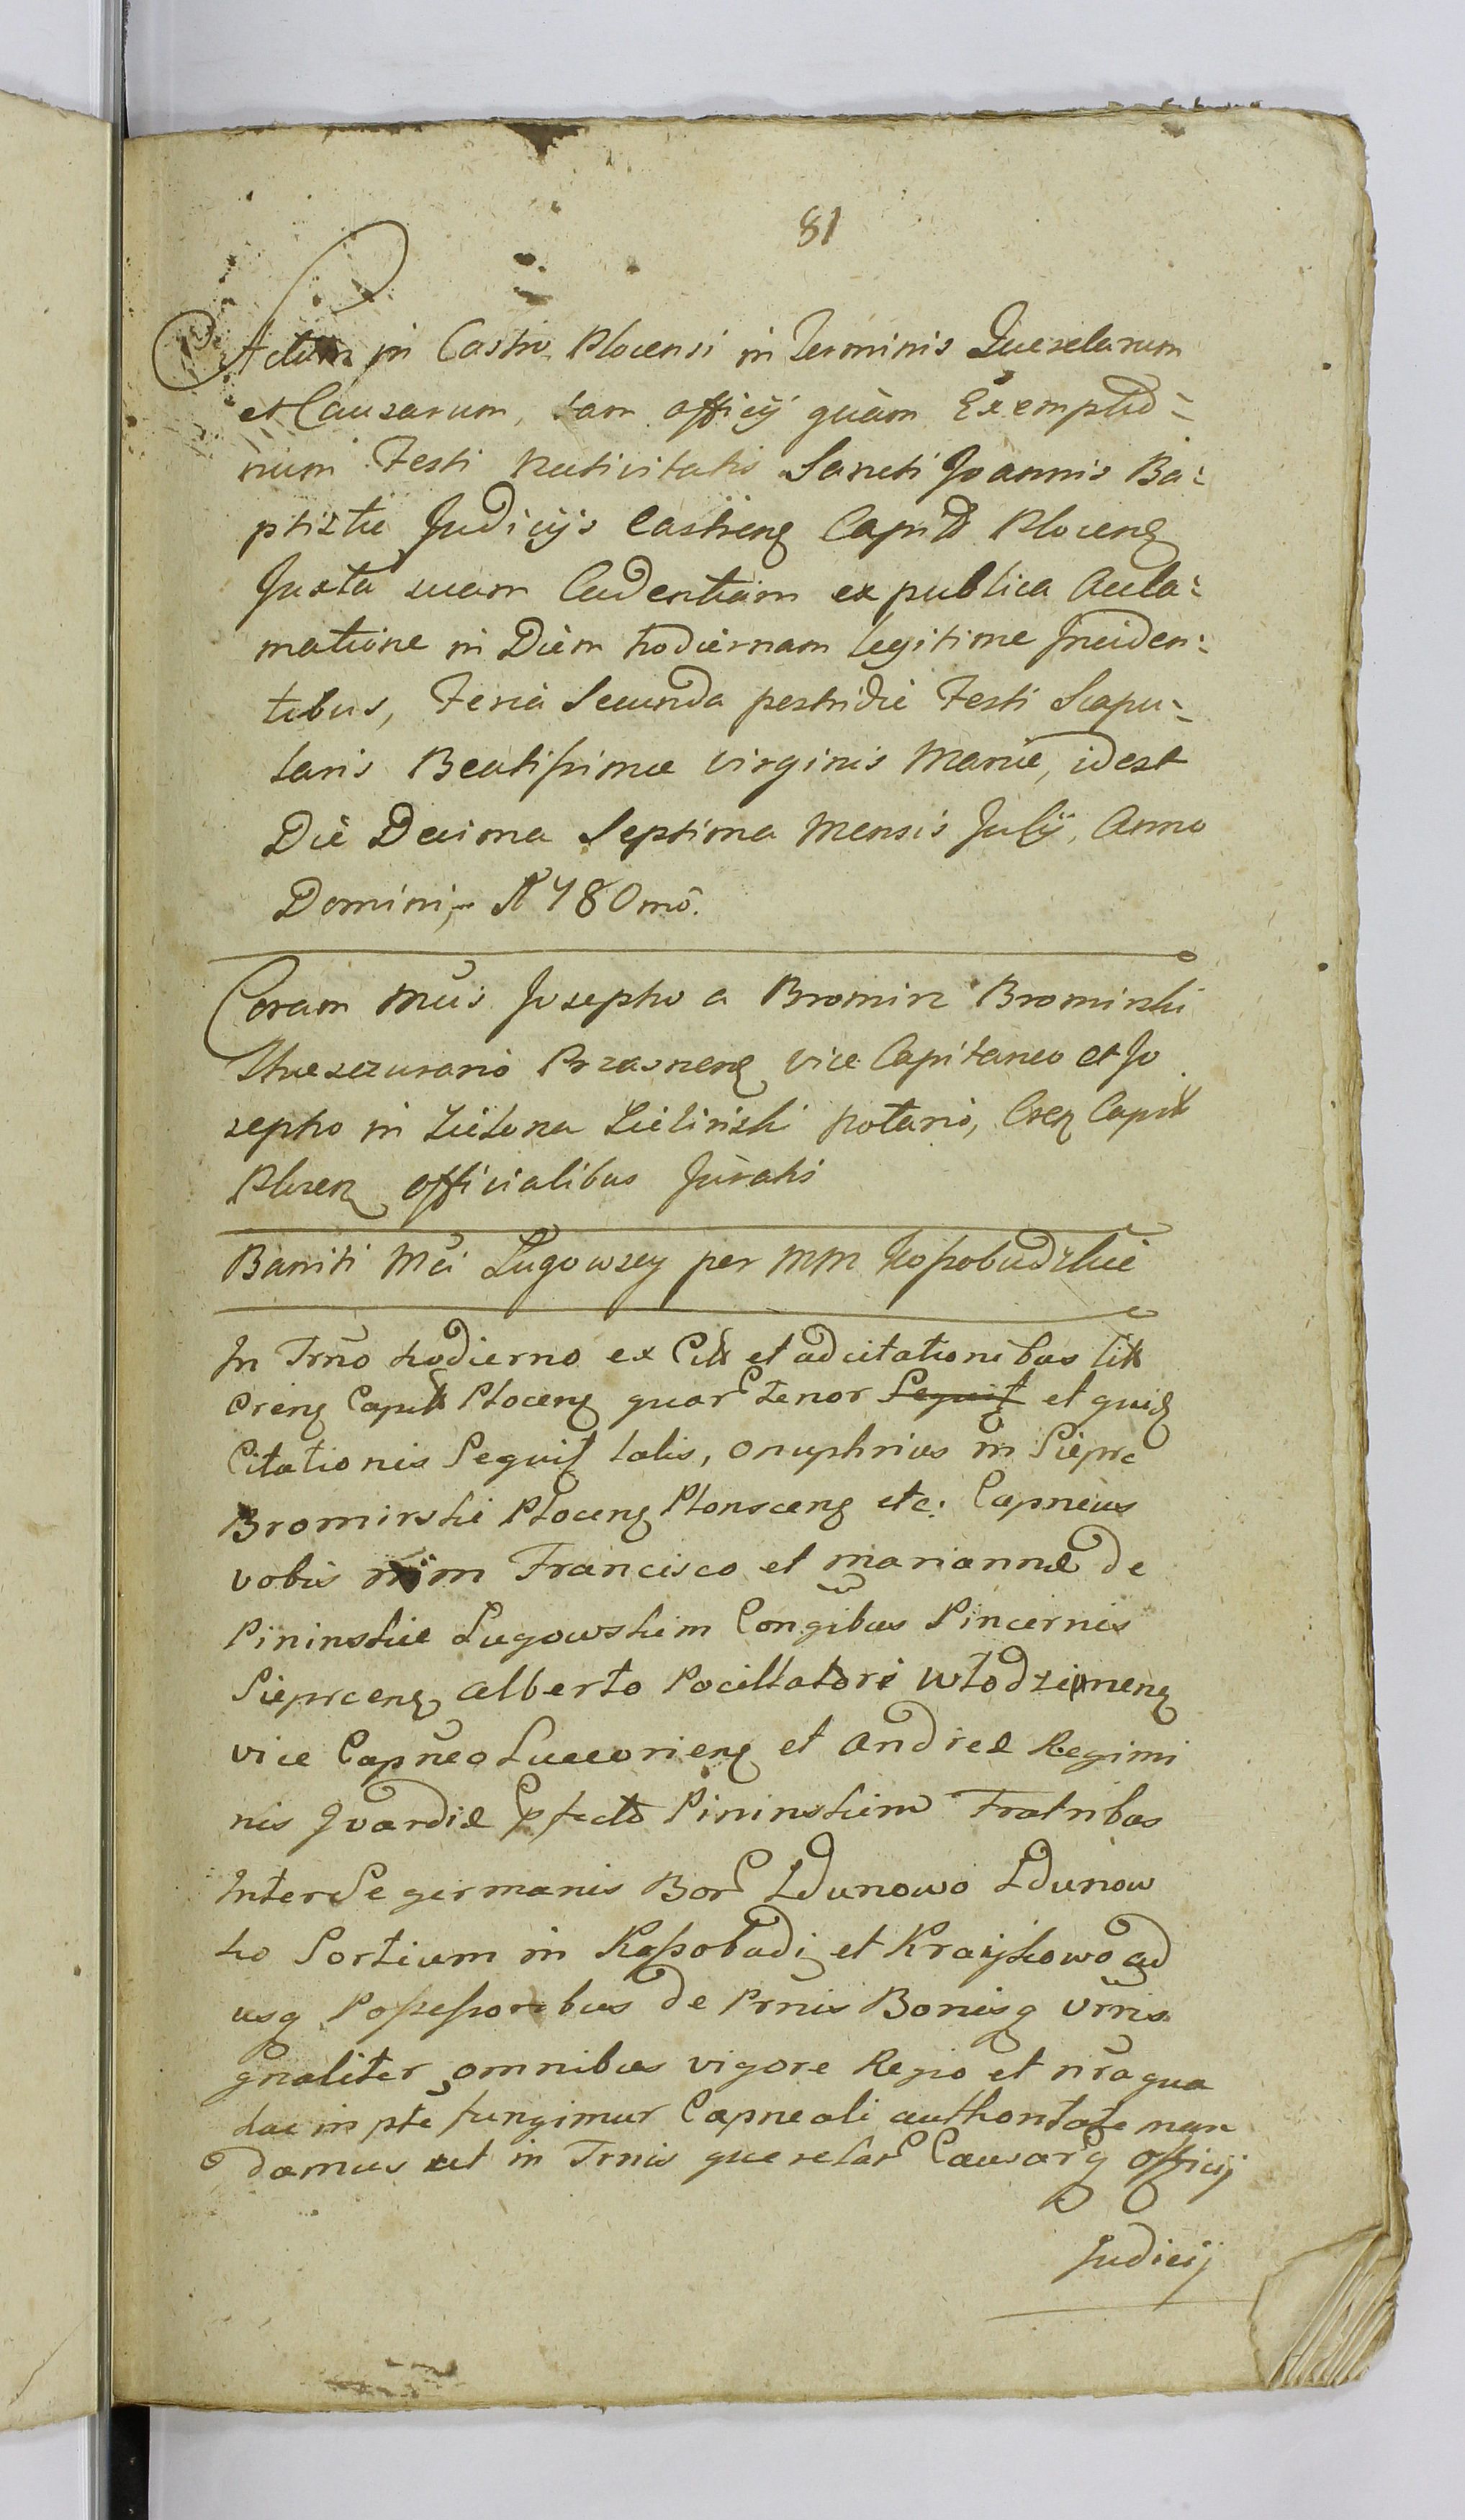 81
Actum in Castro Plocensi in Terminis Querelarum
et Causarum, tam officij quàm Exemptio=
num Festi Nativitatis Sancti Joannis Ba=
ptistæ Judicijs Castren Capit Plocen
Juxta suam Cadentiam ex publica Accla=
matione in Diem hodiernam legitime Inciden=
tibus, Feria Secunda postridie Festi Scapu=
laris Beatissimæ Virginis Mariæ, idest
Die Decima Septima Mensis Julij, Anno
Domini, 1780mo.
Coram Mcis Josepho a Bromirz Bromirski
Thesaurario Przasnen Vice Capitaneo et Jo
sepho in Zielona Zieliński Notario, Cren Capit
Plocen officialibus Juratis
Baniti Mci Lugowscy per MM Kossobudzkie
In Trno hodierno ex Citt et adcitationibus litt
Cren Capit Plocen quar tenor Sequit et quid
Citationis Sequit talis, Onuphrius in Sieprc
Bromirski Plocen Plonscen etc. Capneus
vobis Francisco et Mariannæ de
Pininskie Lugowskim Congibus Pincernis
Sieprcen Alberto Pocillatori Włodzimen
vice Capneo Luceorien et Andreæ Regimi
nis Gvardiæ Pfecto Pininskim Fratribus
Inter Se germanis Bor Zdunowo Zdunow
ko Sortium in Kossobudi et Kraijkowo ad
usq Possessoribus de Prnis Bonisq Vrris
gnaliter omnibus vigore Regio et nra qua
hac in pte fungimur Capneali authoritate man
damus ut in Trnis querelar Causarq officij
Judicij